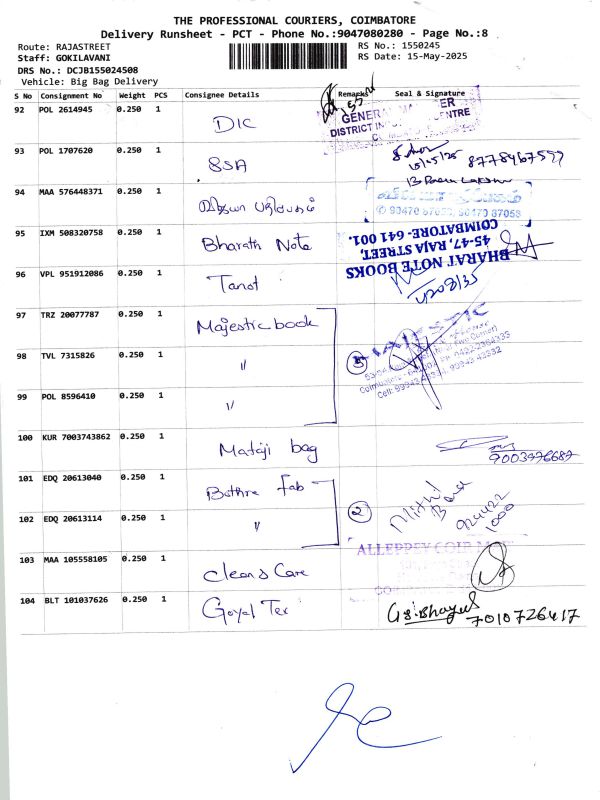 THE PROFESSIONAL COURIERS, COIMBATORE
Delivery Runsheet - PCT - Phone No.:9047080280 - Page No.:8
Route: RAJASTREET
RS No.: 1550245
Staff: GOKILAVANI
RS Date: 15-May-2025
DRS No.: DCJB155024508
Vehicle: Big Bag Delivery
S No Consignment No Weight PCS Consignee Details Remarks Seal & Signature
92 POL 2614945 0.250 1 DIC
GENERAL MANAGER
DISTRICT INDUSTRIES CENTRE
93 POL 1707620 0.250 1 SSA
15/05/25 8778467597
94 MAA 576448371 0.250 1
95 IXM 508320758 0.250 1 Bharath Note
BHARAT NOTE BOOKS
45-47, RAJA STREET,
COIMBATORE- 641 001.
96 VPL 951912086 0.250 1 Tanot
97 TRZ 20077787 0.250 1 Majestic book
MAJESTIC
98 TVL 7315826 0.250 1 "
3
99 POL 8596410 0.250 1 "
100 KUR 7003743862 0.250 1 Mataji bag
9003976687
101 EDQ 20613040 0.250 1 Bothra fab
2
102 EDQ 20613114 0.250 1 "
924422
1000
ALLEPPEY COIR
103 MAA 105558105 0.250 1 Clean & Care
104 BLT 101037626 0.250 1 Goyal Tex
7010726417